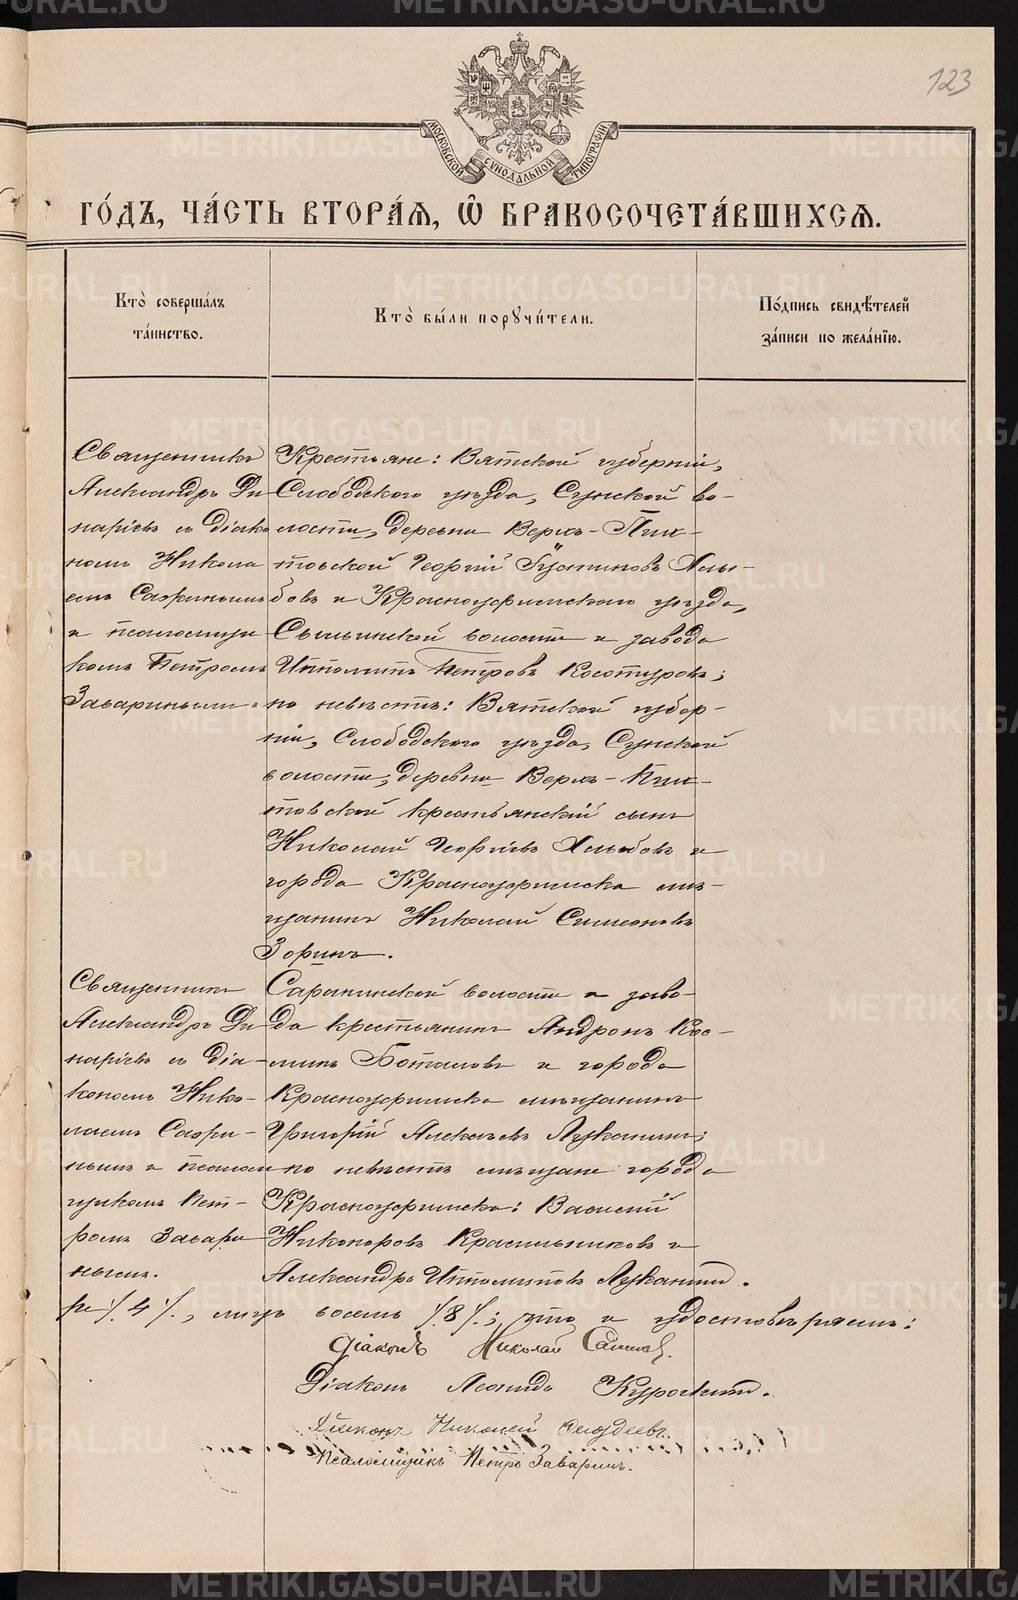 123
МОСКОВСКОЙ СѴНОДАЛЬНОЙ ТИПОГРАФІИ
ГО́ДЪ, ЧА́СТЬ ВТОРА́Ѧ, Ѽ БРАКОСОЧЕТА́ВШИХСѦ.
Кто̀ соверша́лъ
та́инство.
Кто̀ бы́ли порꙋчи́тели.
По́дпись свидѣ́телей
за́писи по жела́нїю.
Священникъ
Александръ Ди
нарiевъ съ Дiако
номъ Никола
емъ Сафинымъ
и псаломщи
комъ Петромъ
Заваринымъ.
Крестьяне: Вятской губернiи,
Слободского уѣзда, Сунской во-
лости, деревни Верхъ-
товской Георгiй Густиновъ Хлы-
бовъ и Красноуфимскаго уѣзда,
Сылвинской волости и завода
Ипполитъ Петровъ Косотуровъ;
по невѣстѣ: Вятской губер-
нiи, Слободского уѣзда, Сунской
волости, деревни Верхъ-
товской крестьянскiй сынъ
Николай Георгiевъ Хлыбовъ и
города Красноуфимска мѣ-
щанинъ Николай Симеоновъ
Зоринъ.
Священникъ
Александръ Ди
нарiевъ съ Дiа-
кономъ Нико-
лаемъ Сафи-
нымъ и псалом
щикомъ Пет-
ромъ Завари
нымъ.
Саранинской волости и заво-
да крестьянинъ Андронъ Кос-
минъ Боталовъ и города
Красноуфимска мѣщанинъ
Григорiй Алексѣевъ Лужанинъ;
по невѣстѣ мѣщане города
Красноуфимска: Василiй
Никаноровъ Красильниковъ и
Александръ Ипполитовъ Лужанин.
ре /. 4 /., лицъ восемь /. 8 /.; что и удостовѣряемъ:
Дiаконъ Николай
Дiаконъ Леонидъ
Дiаконъ Николай
Псаломщикъ Петръ Заваринъ.
METRIKI.GASO-URAL.RU